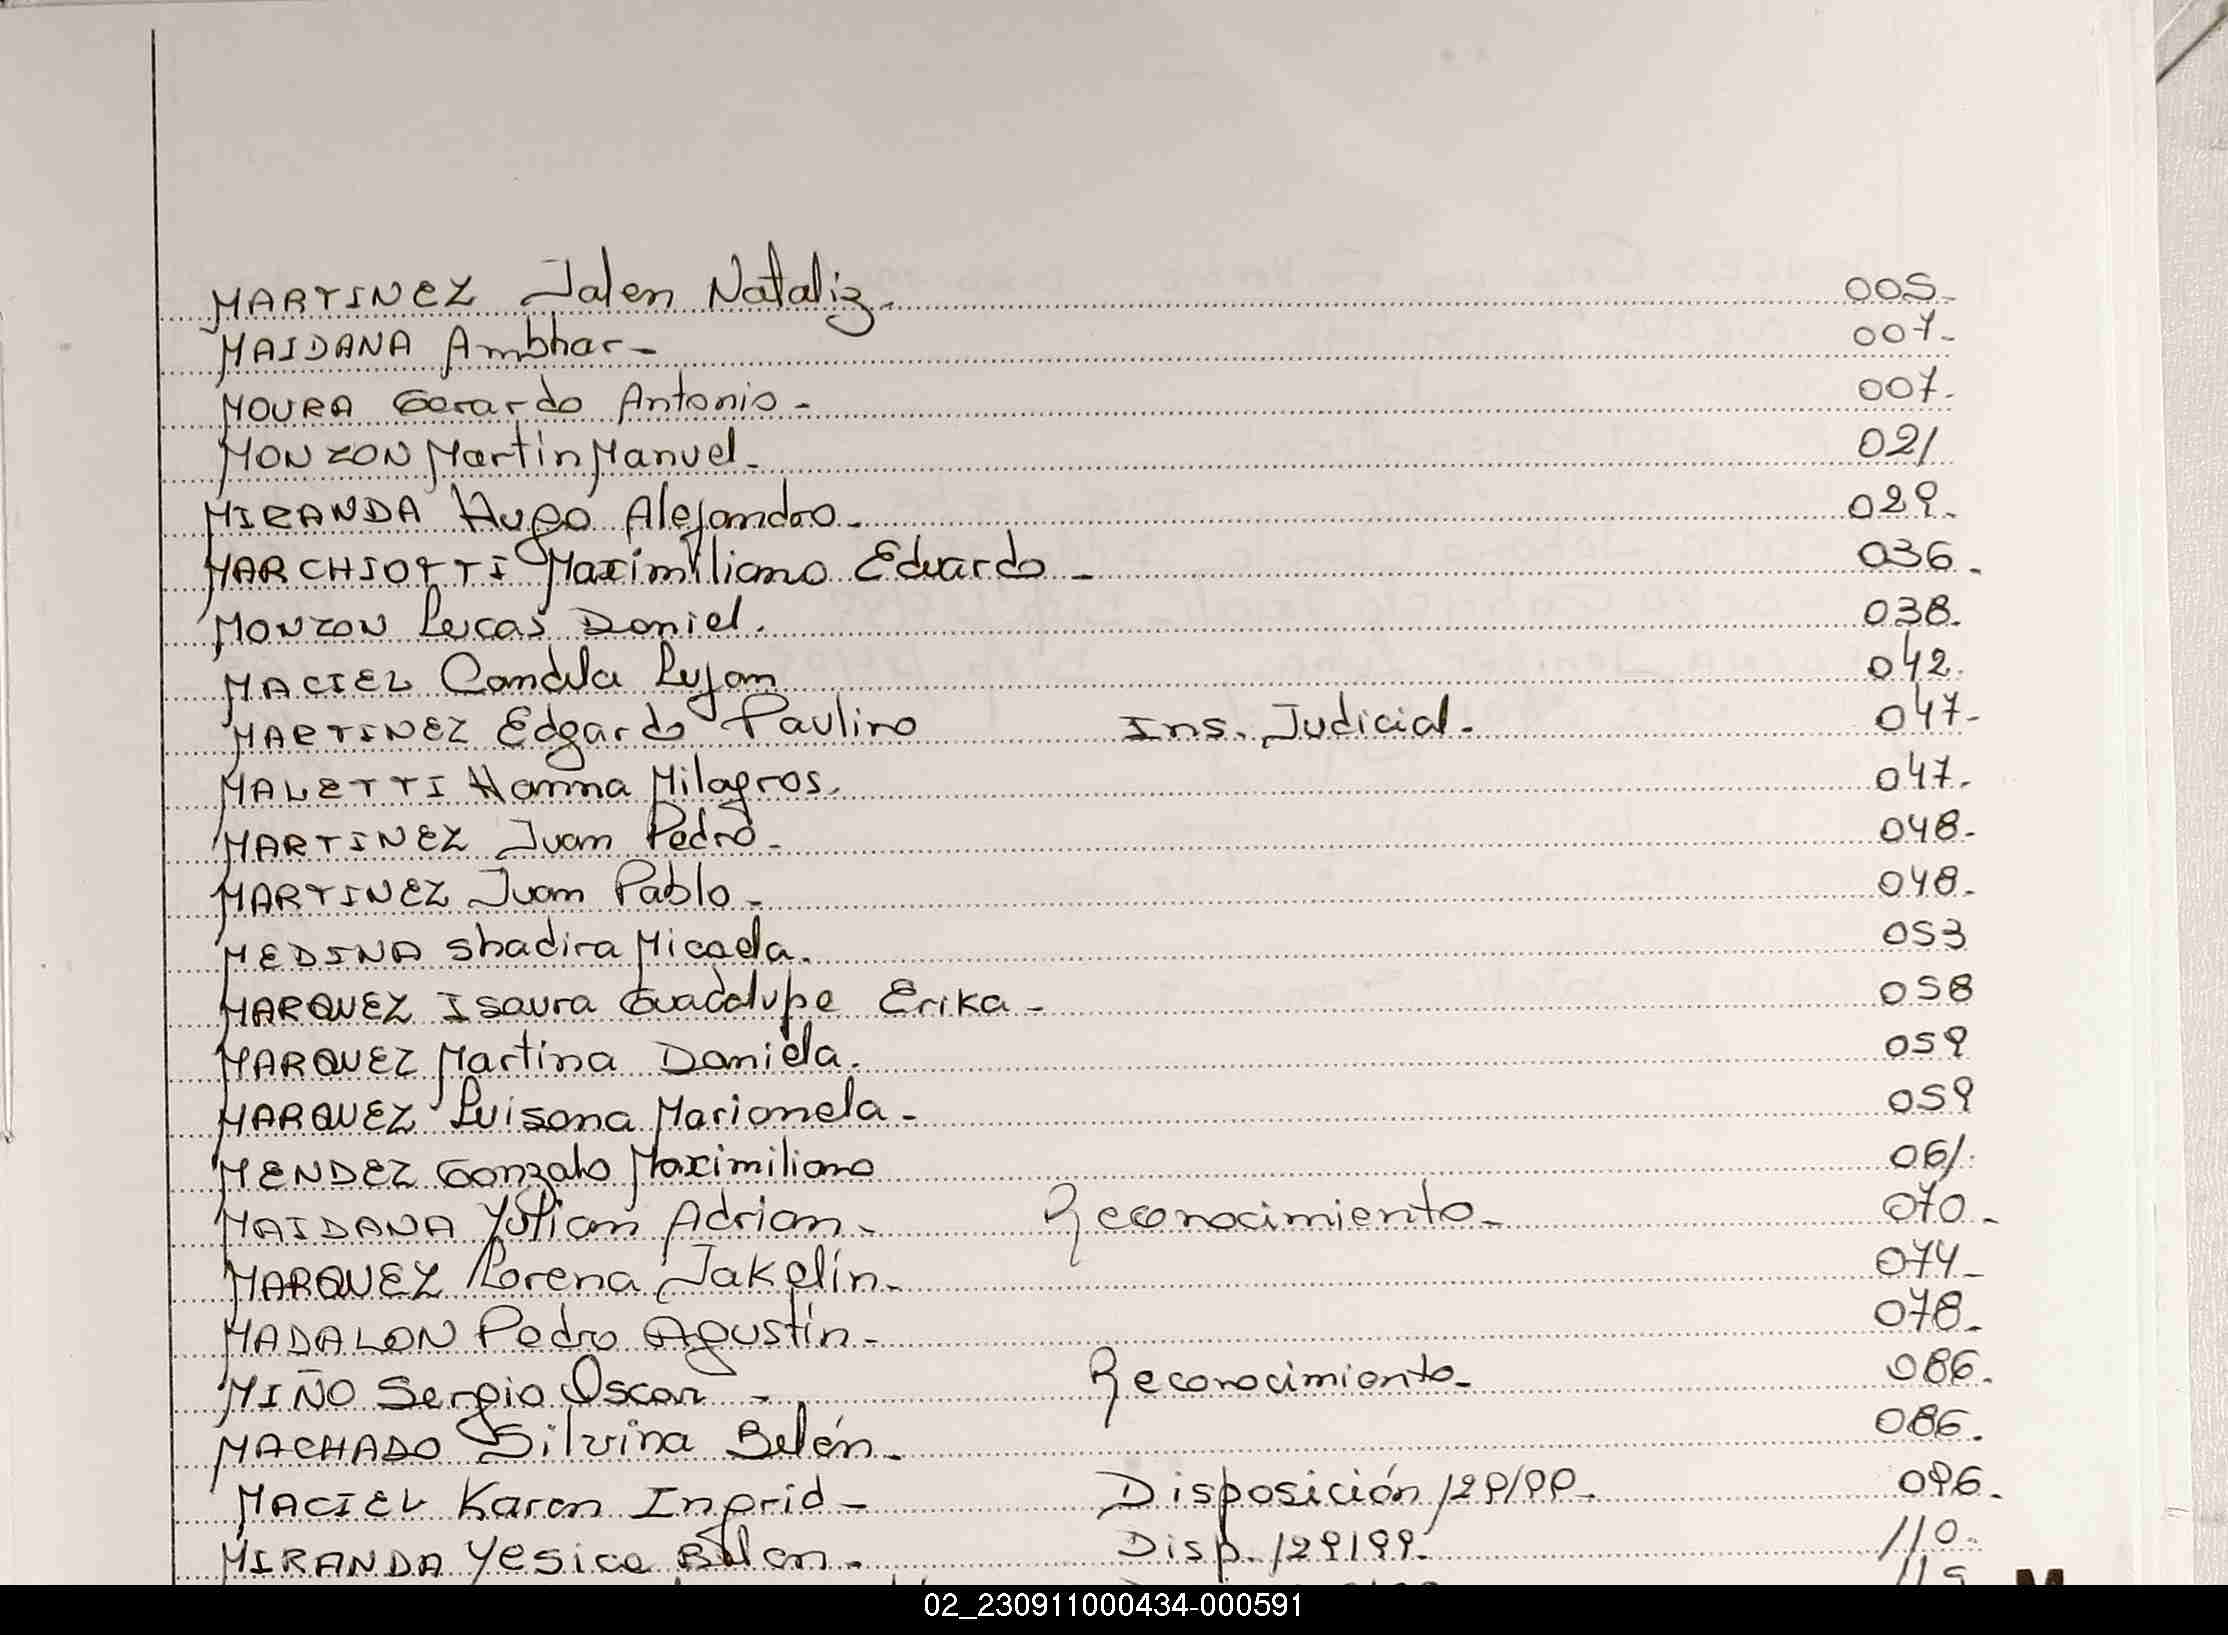 MARTINEZ Jalen Natalia. 005-
MAIDANA Ambhar- 007-
MOURA Gerardo Antonio- 007.
MONZON Martin Manuel- 021
MIRANDA Hugo Alejandro- 029.
MARCHIOTTI Maximiliano Eduardo - 036.
MONZON Lucas Daniel. 038.
MACIEL Candela Lujan 042.
MARTINEZ Edgardo Paulino Ins. Judicial. 047-
MALETTI Hanna Milagros. 047.
MARTINEZ Juan Pedro- 048-
MARTINEZ Juan Pablo- 048-
MEDINA Shadira Micaela. 053
MARQUEZ Isaura Guadalupe Erika- 058
MARQUEZ Martina Daniela. 059
MARQUEZ Luisana Marianela- 059
MENDEZ Gonzalo Maximiliano 061
MAIDANA Yulian Adrian- Reconocimiento- 070-
MARQUEZ Lorena Jakelin- 074-
MADALON Pedro Agustín- 078-
MIÑO Sergio Oscar - Reconocimiento- 086.
MACHADO Silvina Belén- 086.
MACIEL Karen Ingrid- Disposición 129/99- 096.
MIRANDA Yesica Belen- Disp. 129199- 110.
M
02_230911000434-000591